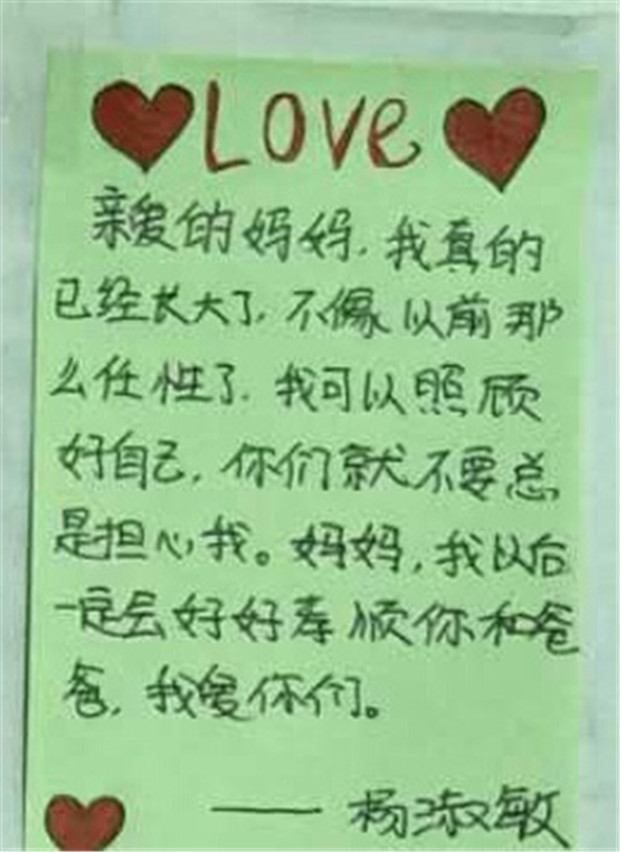 Love
亲爱的妈妈,我真的
已经长大了,不像以前那
么任性了,我可以照顾
好自己,你们就不要总
是担心我。妈妈,我以后
一定会好好孝顺你和爸
爸,我爱你们。
—— 杨淑敏